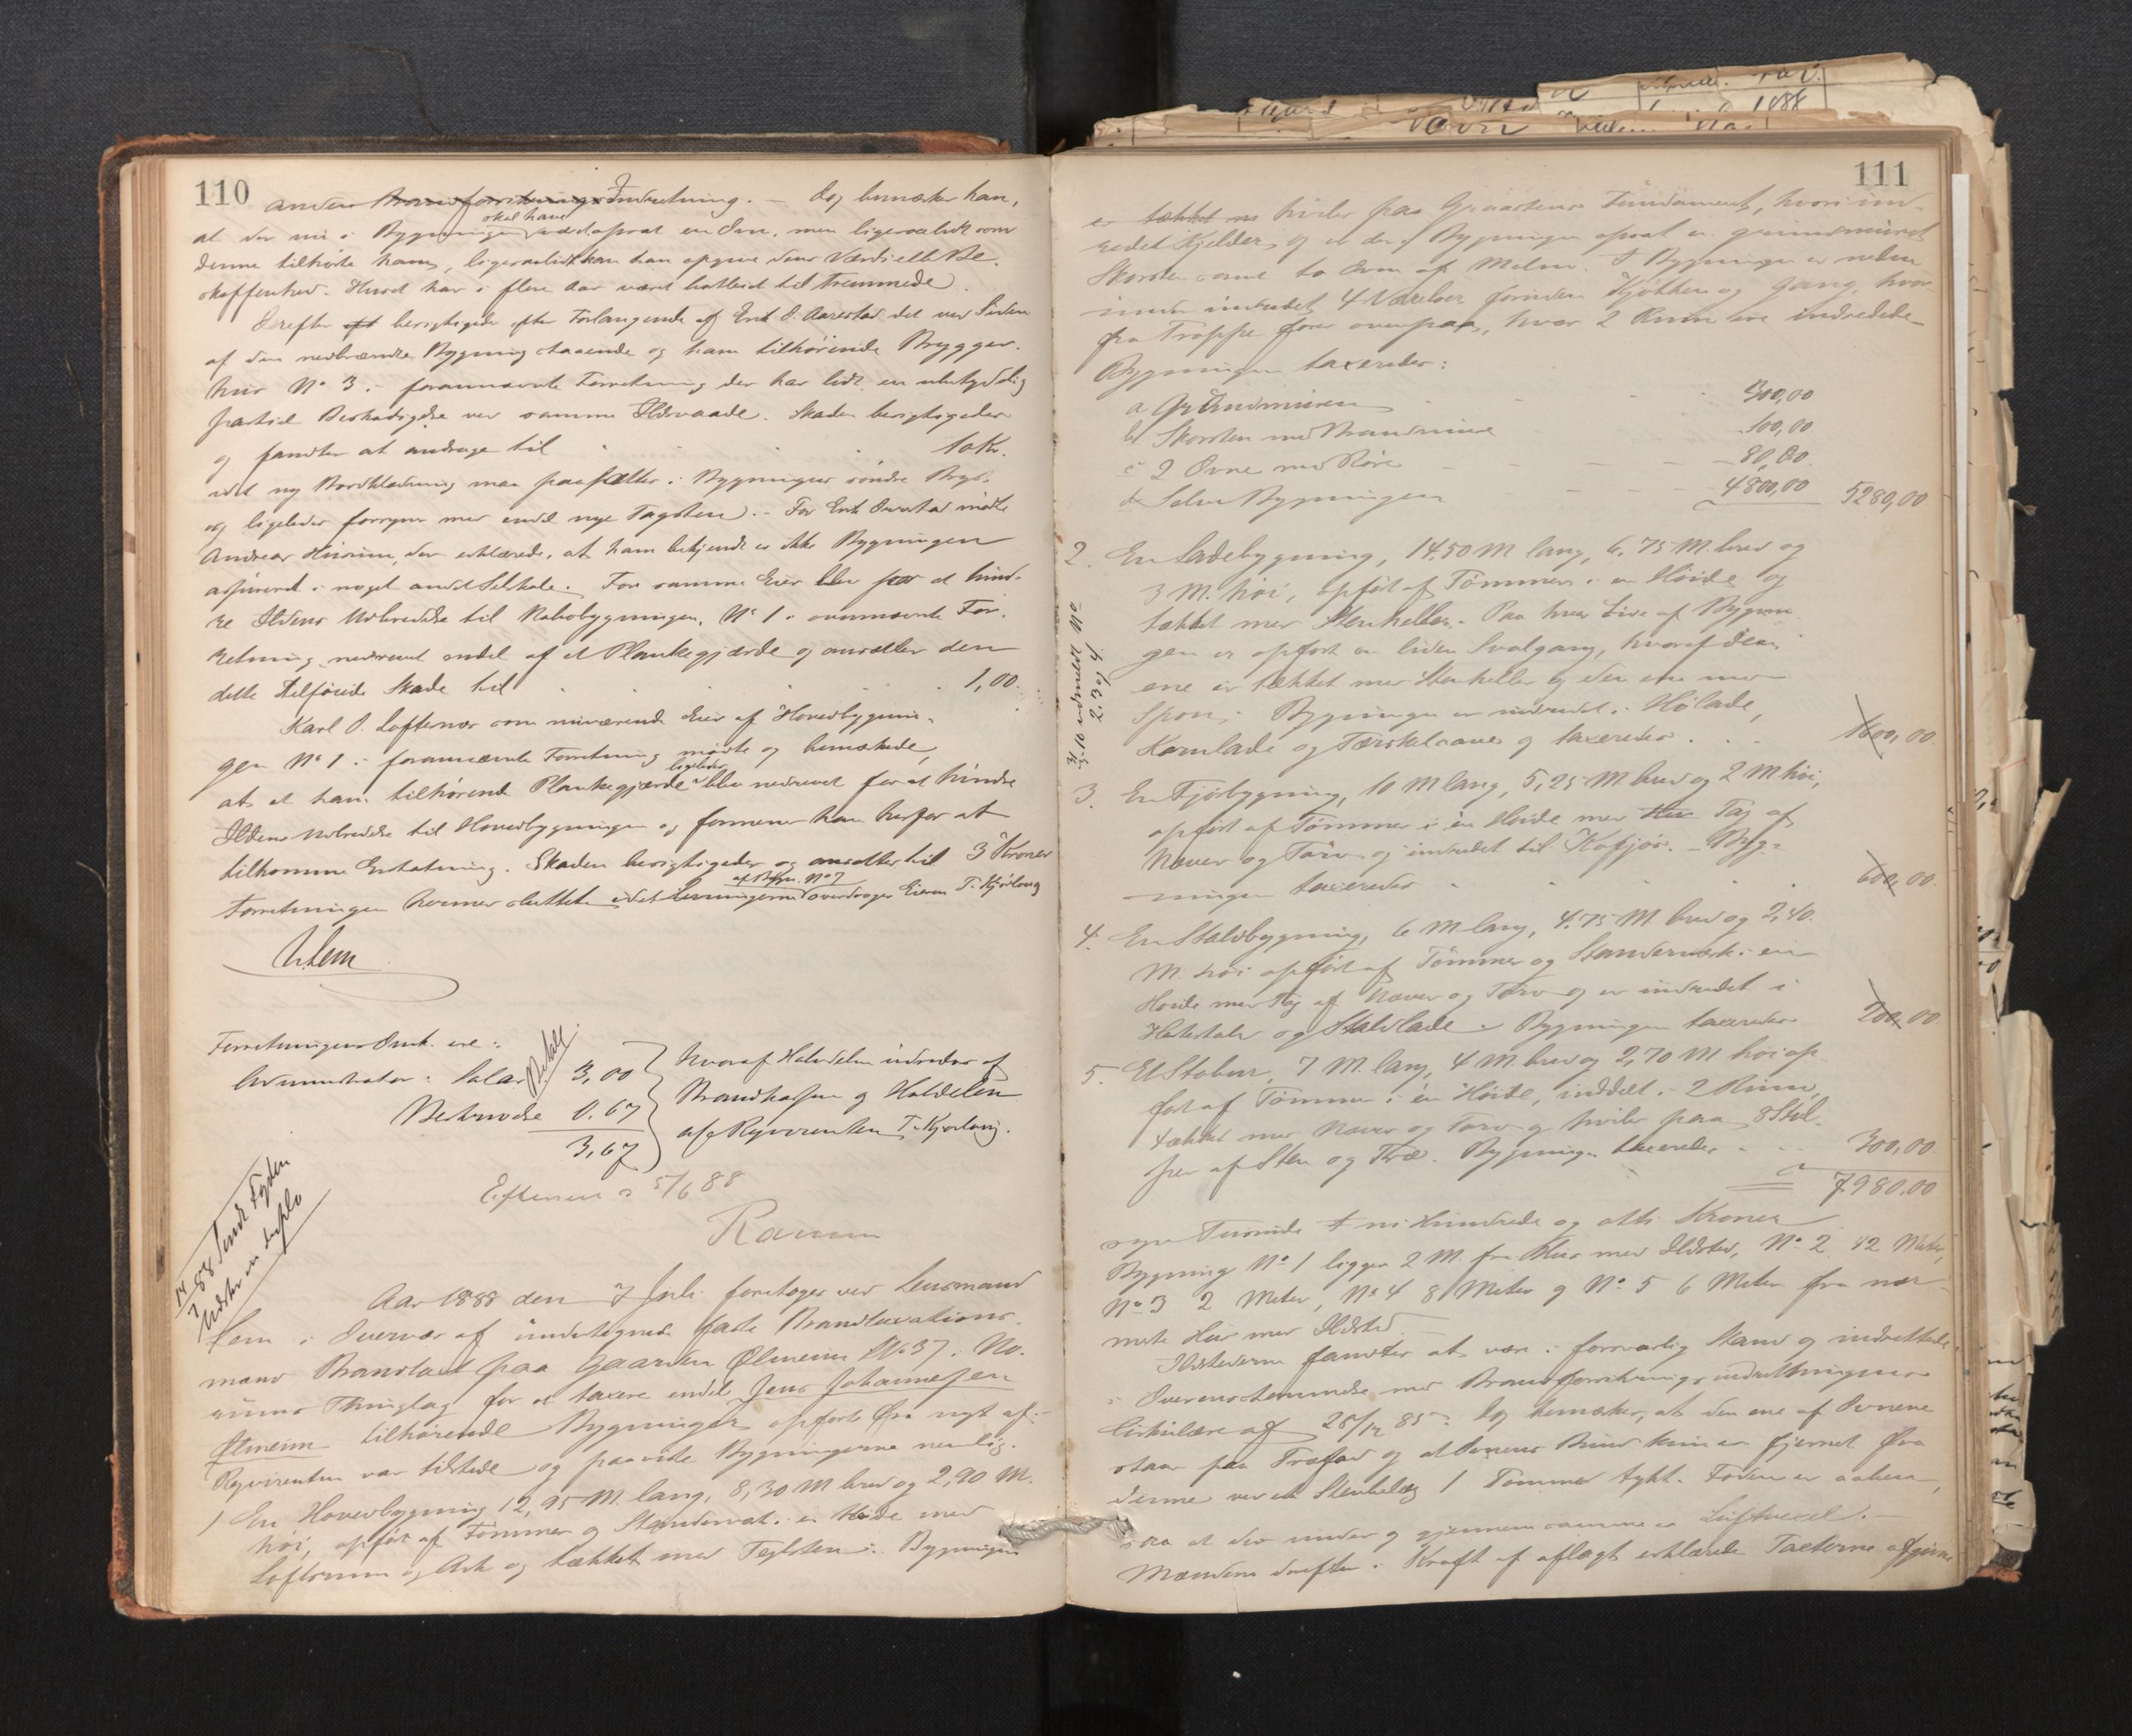 110
anden Brandforsikrings Indretning. — Og bemærker han,
at der nu i Bygningen skal have været opsat en Ovn, men ligesaalidt som
denne tilhørte ham, ligesaalidt kan han opgive dens Værdi eller Be-
skaffenhed. Huset har i flere Aar været bortleiet til Fremmede.
Derefter besigtigedes efter Forlangende af Erik O. Aarestad det ved Siden
af den nedbrændte Bygning staaende og ham tilhørende Brygger-
hus No 3 i forannævnte Forretning der har lidt en ubetydelig
partiel Beskadigelse ved samme Ildsvaade. Skaden besigtigedes
og fandtes at andrage til 10 Kr.
idet ny Bordklædning maa paasættes i Bygningens søndre
og ligeledes fornyes med endel nye Tagsten. – For Erik mødte
Andreas der erklærede, at ham bekjendt er ikke Bygningen
assureret i noget andet Selskab. For samme Eier blev for at hind-
re Ildens Udbredelse til Nabobygningen, No 1 i ovennævnte For-
retning nedrevet endel af et Plankegjærde og ansættes den
dette tilføiede Skade til 1,00.
Karl O. Loftesnæs som nuværende Eier af Hovedbygnin-
gen No 1 i forannævnte Forretning mødte og bemærkede,
at et ham tilhørende Plankegjærde ligeledes blev nedrevet for at hindre
Ildens Udbredelse til Hovedbygningen og formener han herfor at
tilkomme Erstatning. Skaden besigtigedes og ansættes til 3 Kroner
Forretningen hermed sluttet idet Levningerne af Bygn. No 7 overdrages Eieren T. Kjørlaug
Lem
Forretningens Omk. ere:
Administrator: Salær 3,00
Betalt
0.67
3,67
hvoraf Halvdelen udredes af
Brandkassen og Halvdelen
af Reqvirenten T. Kjørlaug.
Efterseet 5/6 88
14/7 88 Sendt Fogden
Udskr in duplo
Aar 1888 den 7 Juli foretoges ved Lensmand
Lem i Overvær af undertegnede faste Brandtaxations-
mænd Brandtaxt paa Gaarden Ølmeim No 37 i No-
rums Thinglag for at taxere endel Jens Johannessen
Ølmeim tilhørende Bygninger opført fra nyt af:-
Reqvirenten var tilstede og paaviste Bygningerne nemlig.
1 En Hovedbygning 12,95 M. lang, 8,30 M bred og 2,90 M.
høi, opført af Tømmer og Standerværk i en Høide med
Loftsrum og Ark og tækket med Teglsten. Bygningen
111
er tækket hviler paa Graastens Fundament, hvori ind-
redet Kjelder, og er der i Bygningen opsat en grundmuret
Skorsten samt to Ovne af Malm. I Bygningen er neden-
under indredet 4 Værelser foruden Kjøkken og Gang, hvor-
fra Trappe fører ovenpaa, hvor 2 Rum ere indredede –
Bygningen taxeredes:
a Grundmuren 300,00
b Skorsten med Brandmure 100,00
c 2 Ovne med Rør 80,00
d Selve Bygningen 4800,00 5280,00
2. En Ladebygning, 14,50 M lang, 6,75 M. bred og
3 M. høi, opført af Tømmer i en Høide og
tækket med Stenheller. Paa hver Side af Bygnin-
gen er opført en liden Svalgang, hvoraf den
ene er tækket med Stenheller og den ene med
Spon. Bygningen er indredet i Hølade,
Kornlade og Tærskelaave og taxeredes 1600,00
No
2. 3 og 4
3. En Fjøsbygning, 10 M lang, 5,25 M bred og 2 M høi,
opført af Tømmer i en Høide med Tag af
Næver og Torv og indredet til Kofjøs. – Byg-
ningen taxeredes 600,00
4. En Staldbygning, 6 M lang, 4.75 M bred og 2,40
M. høi opført af Tømmer og Standerværk i en
Høide med Tag af Næver og Torv og er indredet i
Hestestald og Staldlade. Bygningen taxeredes 200,00
5. Et Stabur, 7 M. lang, 4 M. bred og 2,70 M høi op-
ført af Tømmer i en Høide, inddelt i 2 Rum,
tækket med Næver og Torv og hviler paa 8 Stol-
per af Sten og Træ. Bygningen taxeredes 300,00
7980,00
syv Tusinde ni Hundrede og otti Kroner
Bygning No 1 ligger 2 M. fra Hus med Ildsted, No 2 12 Meter,
No 3 2 Meter, No 4 8 Meter og No 5 6 Meter fra nær-
meste Hus med Ildsted.
Ildstederne fandtes at være i forsvarlig Stand og indrettede
i Overensstemmelse med Brandforsikringsindretningens
Cirkulære af 28/12 85. Og bemærkes, at den ene af Ovnene
staar paa Træfod og at Ovnens Bund kun er fjernet fra
denne ved et Stenbelæg 1 Tomme tykt. Foden er aaben,
saa at der under og gjennem samme er Luftvexel. –
Mændene derefter i Kraft af aflagt erklærede Taxterne afgivne